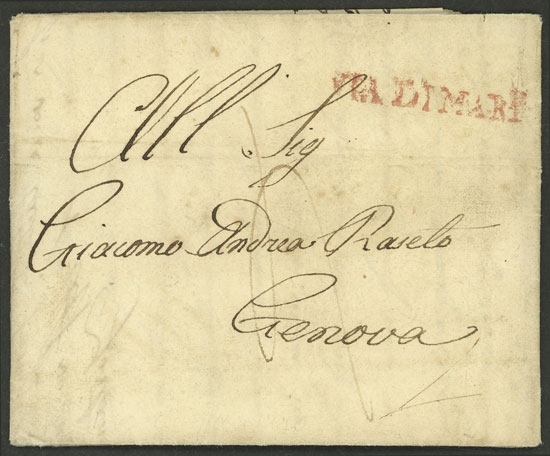 VIA DI MARE
All Sig
Giacomo Andrea Raselo
Genova